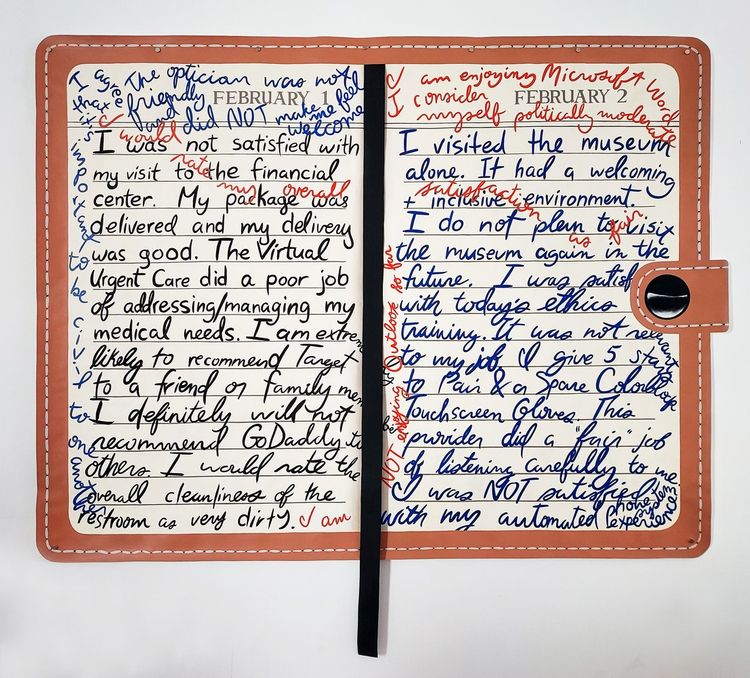 The optician was not
friendly
and did NOT make me feel
welcome
FEBRUARY 1
I agree
that it's important to be civil to one another
I was not satisfied with
my visit to the financial
center. My package was
delivered and my delivery
was good. The Virtual
Urgent Care did a poor job
of addressing/managing my
medical needs. I am extremely
likely to recommend Target
to a friend or family
I definitely will not
recommend GoDaddy to
others. I would rate the
overall cleanliness of the
restroom as very dirty.
I would
rate
my overall
satisfaction
as fair
I am
NOT enjoying Outlook so far
I am enjoying Microsoft Word
FEBRUARY 2
I consider
myself politically moderate
I visited the museum
alone. It had a welcoming
+ inclusive environment.
I do not plan to visit
the museum again in the
future. I was
with today's ethics
training. It was not relevant
to my job. I give 5 stars
to Pair & a Spare Colorblock
Touchscreen Gloves. This
provider did a "fair" job
of listening carefully to me.
I was NOT satisfied
with my automated phone system
experience